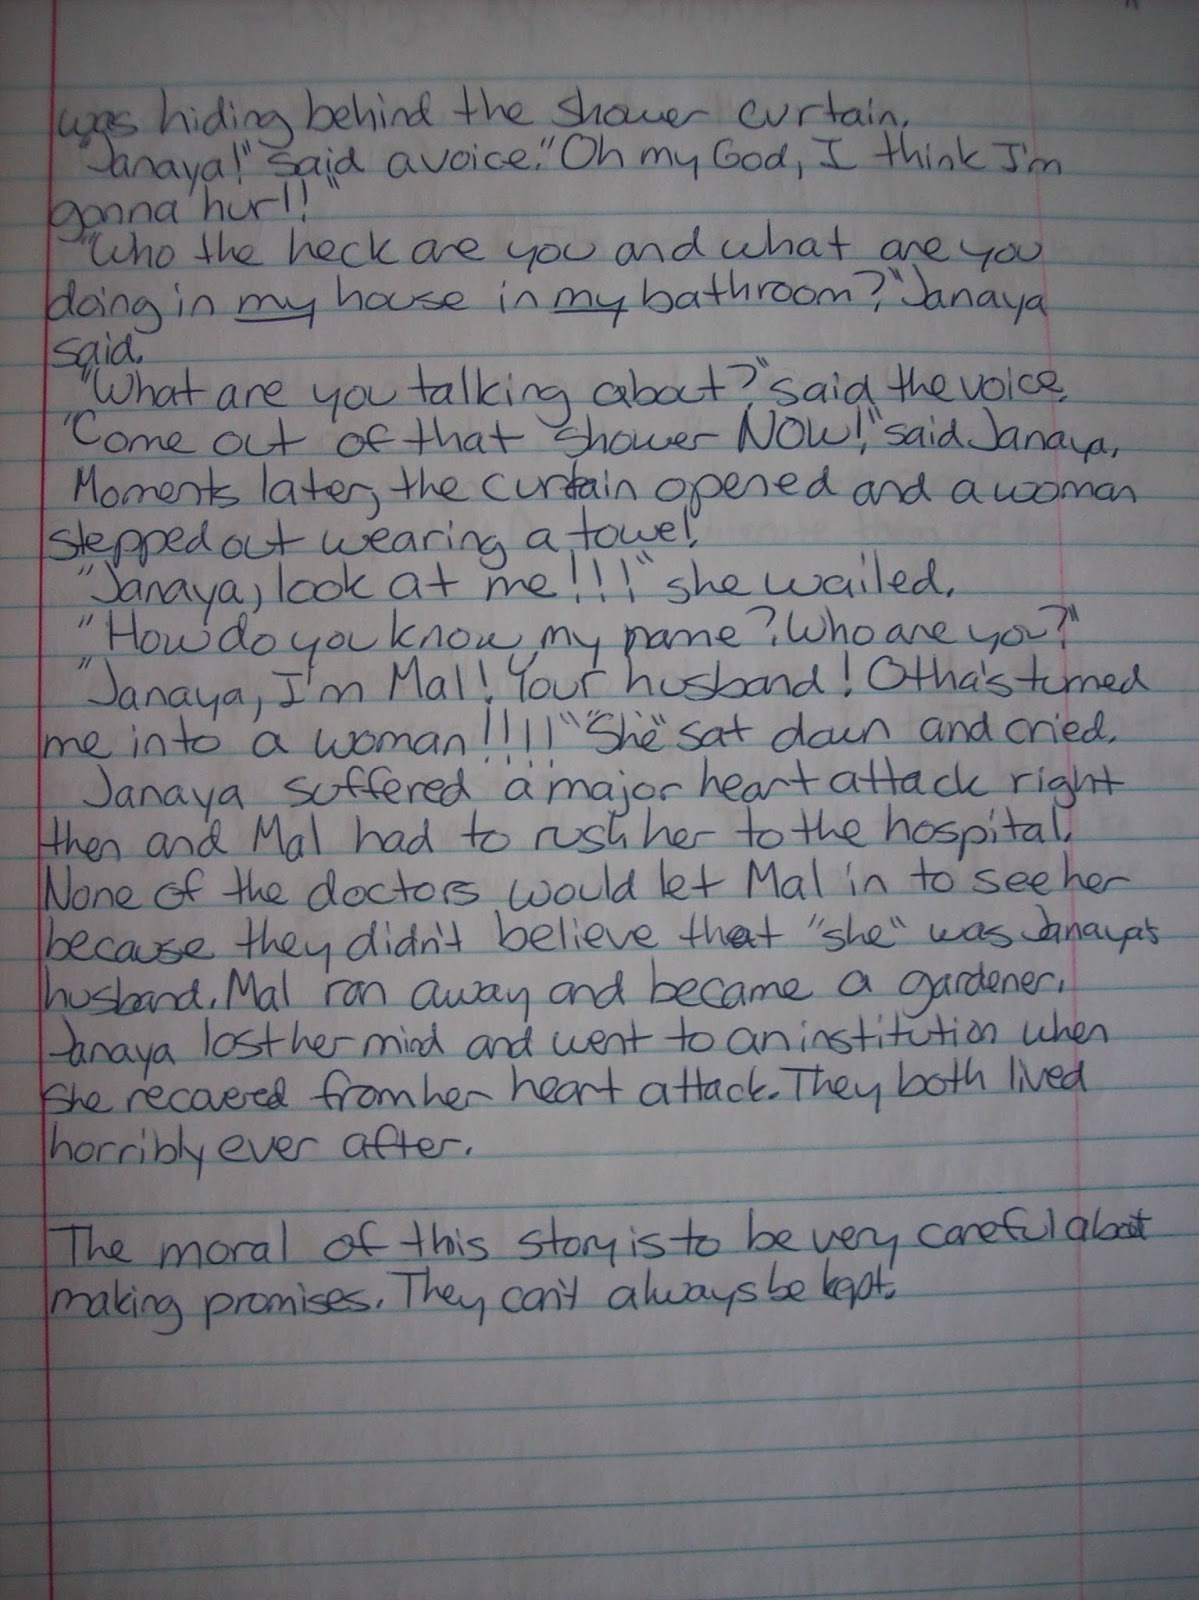 was hiding behind the shower curtain.
"Janaya!" said a voice. "Oh my God, I think I'm
gonna hurl!"
"Who the heck are you and what are you
doing in my house in my bathroom?" Janaya
said.
"What are you talking about?" said the voice.
"Come out of that shower NOW!" said Janaya.
Moments later, the curtain opened and a woman
stepped out wearing a towel.
"Janaya, look at me!!!" she wailed.
"How do you know my name? Who are you?"
"Janaya, I'm Mal! Your husband! Otha's turned
me into a woman!!!!" "She" sat down and cried.
Janaya suffered a major heart attack right
then and Mal had to rush her to the hospital.
None of the doctors would let Mal in to see her
because they didn't believe that "she" was Janaya's
husband. Mal ran away and became a gardener.
Janaya lost her mind and went to an institution when
she recovered from her heart attack. They both lived
horribly ever after.
The moral of this story is to be very careful about
making promises. They can't always be kept.